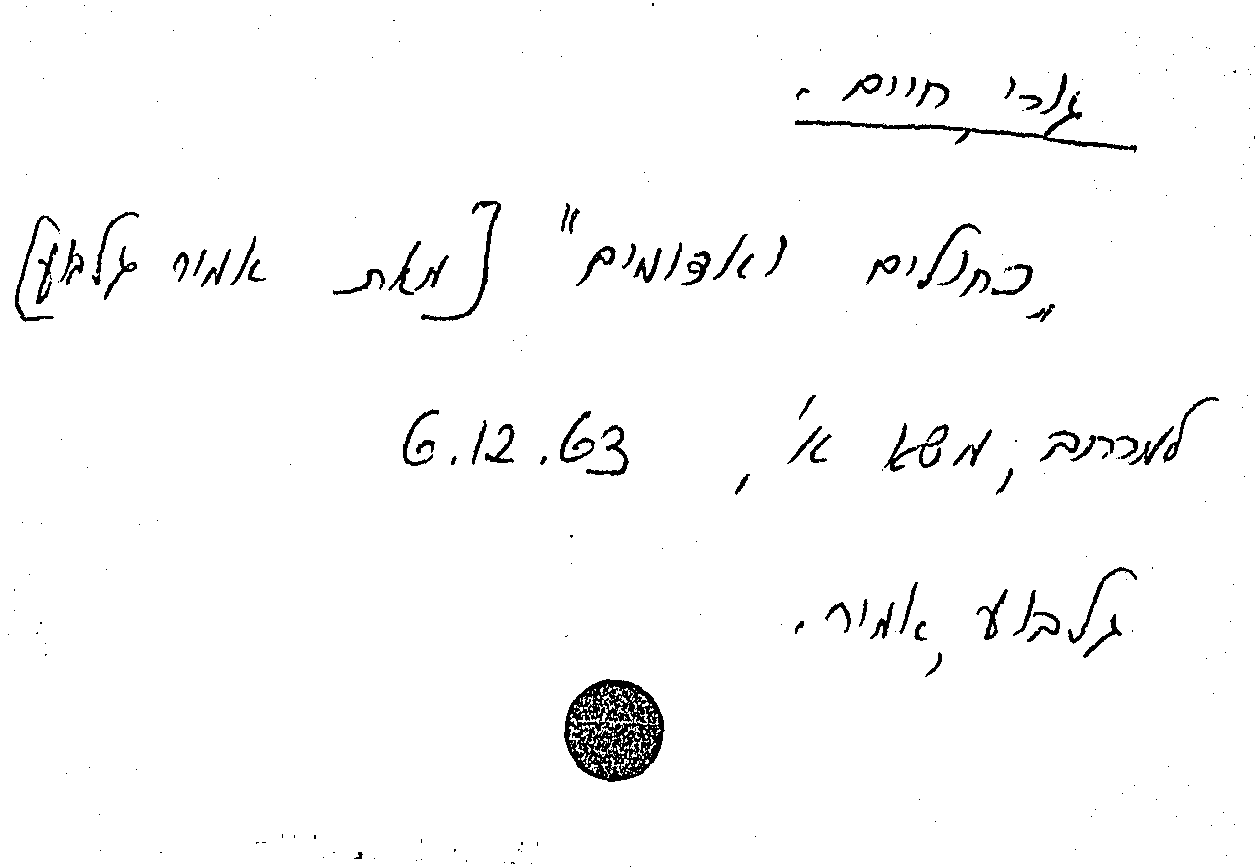 גורי, חיים.
„כחולים ואדומים" [מאת אמיר גלבוע]
למרחב, משא א', 6.12.63
גלבוע, אמיר.